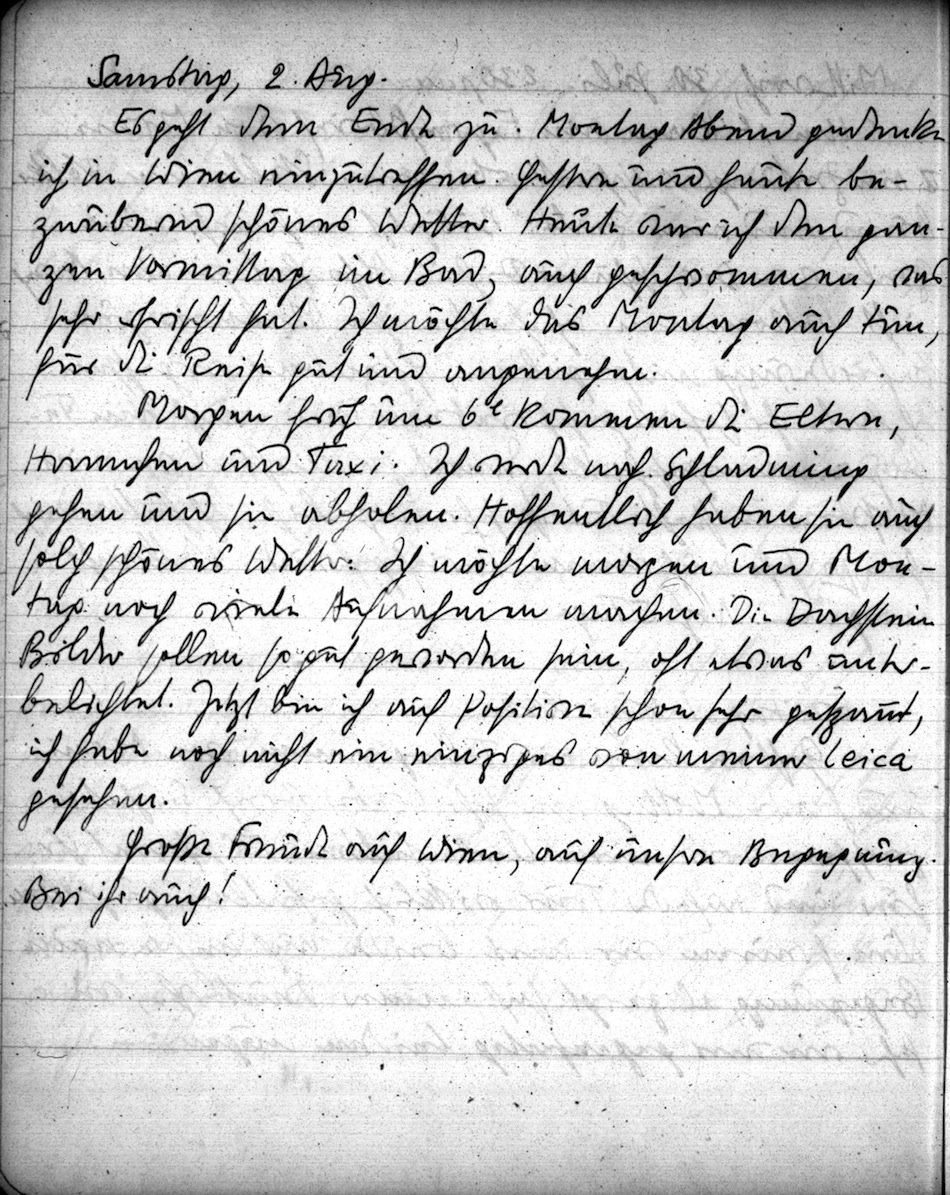 Samstag, 2. Aug.
Es geht dem Ende zu. Montag Abend gedenke
ich in Wien einzutreffen. Gestern und heute be-
zaubernd schönes Wetter. Heute war ich den gan-
zen Vormittag im Bad, auch geschwommen, was
sehr erfrischt hat. Ich möchte das Montag auch tun,
für die Reise gut und angenehm.
Morgen früh um 6h kommen die Eltern,
Hannchen und Taxi. Ich werde nach Schladming
gehen und sie abholen. Hoffentlich haben sie auch
solch schönes Wetter. Ich möchte morgen und Mon-
tag noch viele Aufnahmen machen. Die Dachstein
Bilder sollen so gut geworden sein, oft etwas unter-
belichtet. Jetzt bin ich auf Positive schon sehr gespannt,
ich habe noch nicht ein einziges von meiner Leica
gesehen.
Große Freude auf Wien, auf unsere Begegnung.
Bei ihr auch!